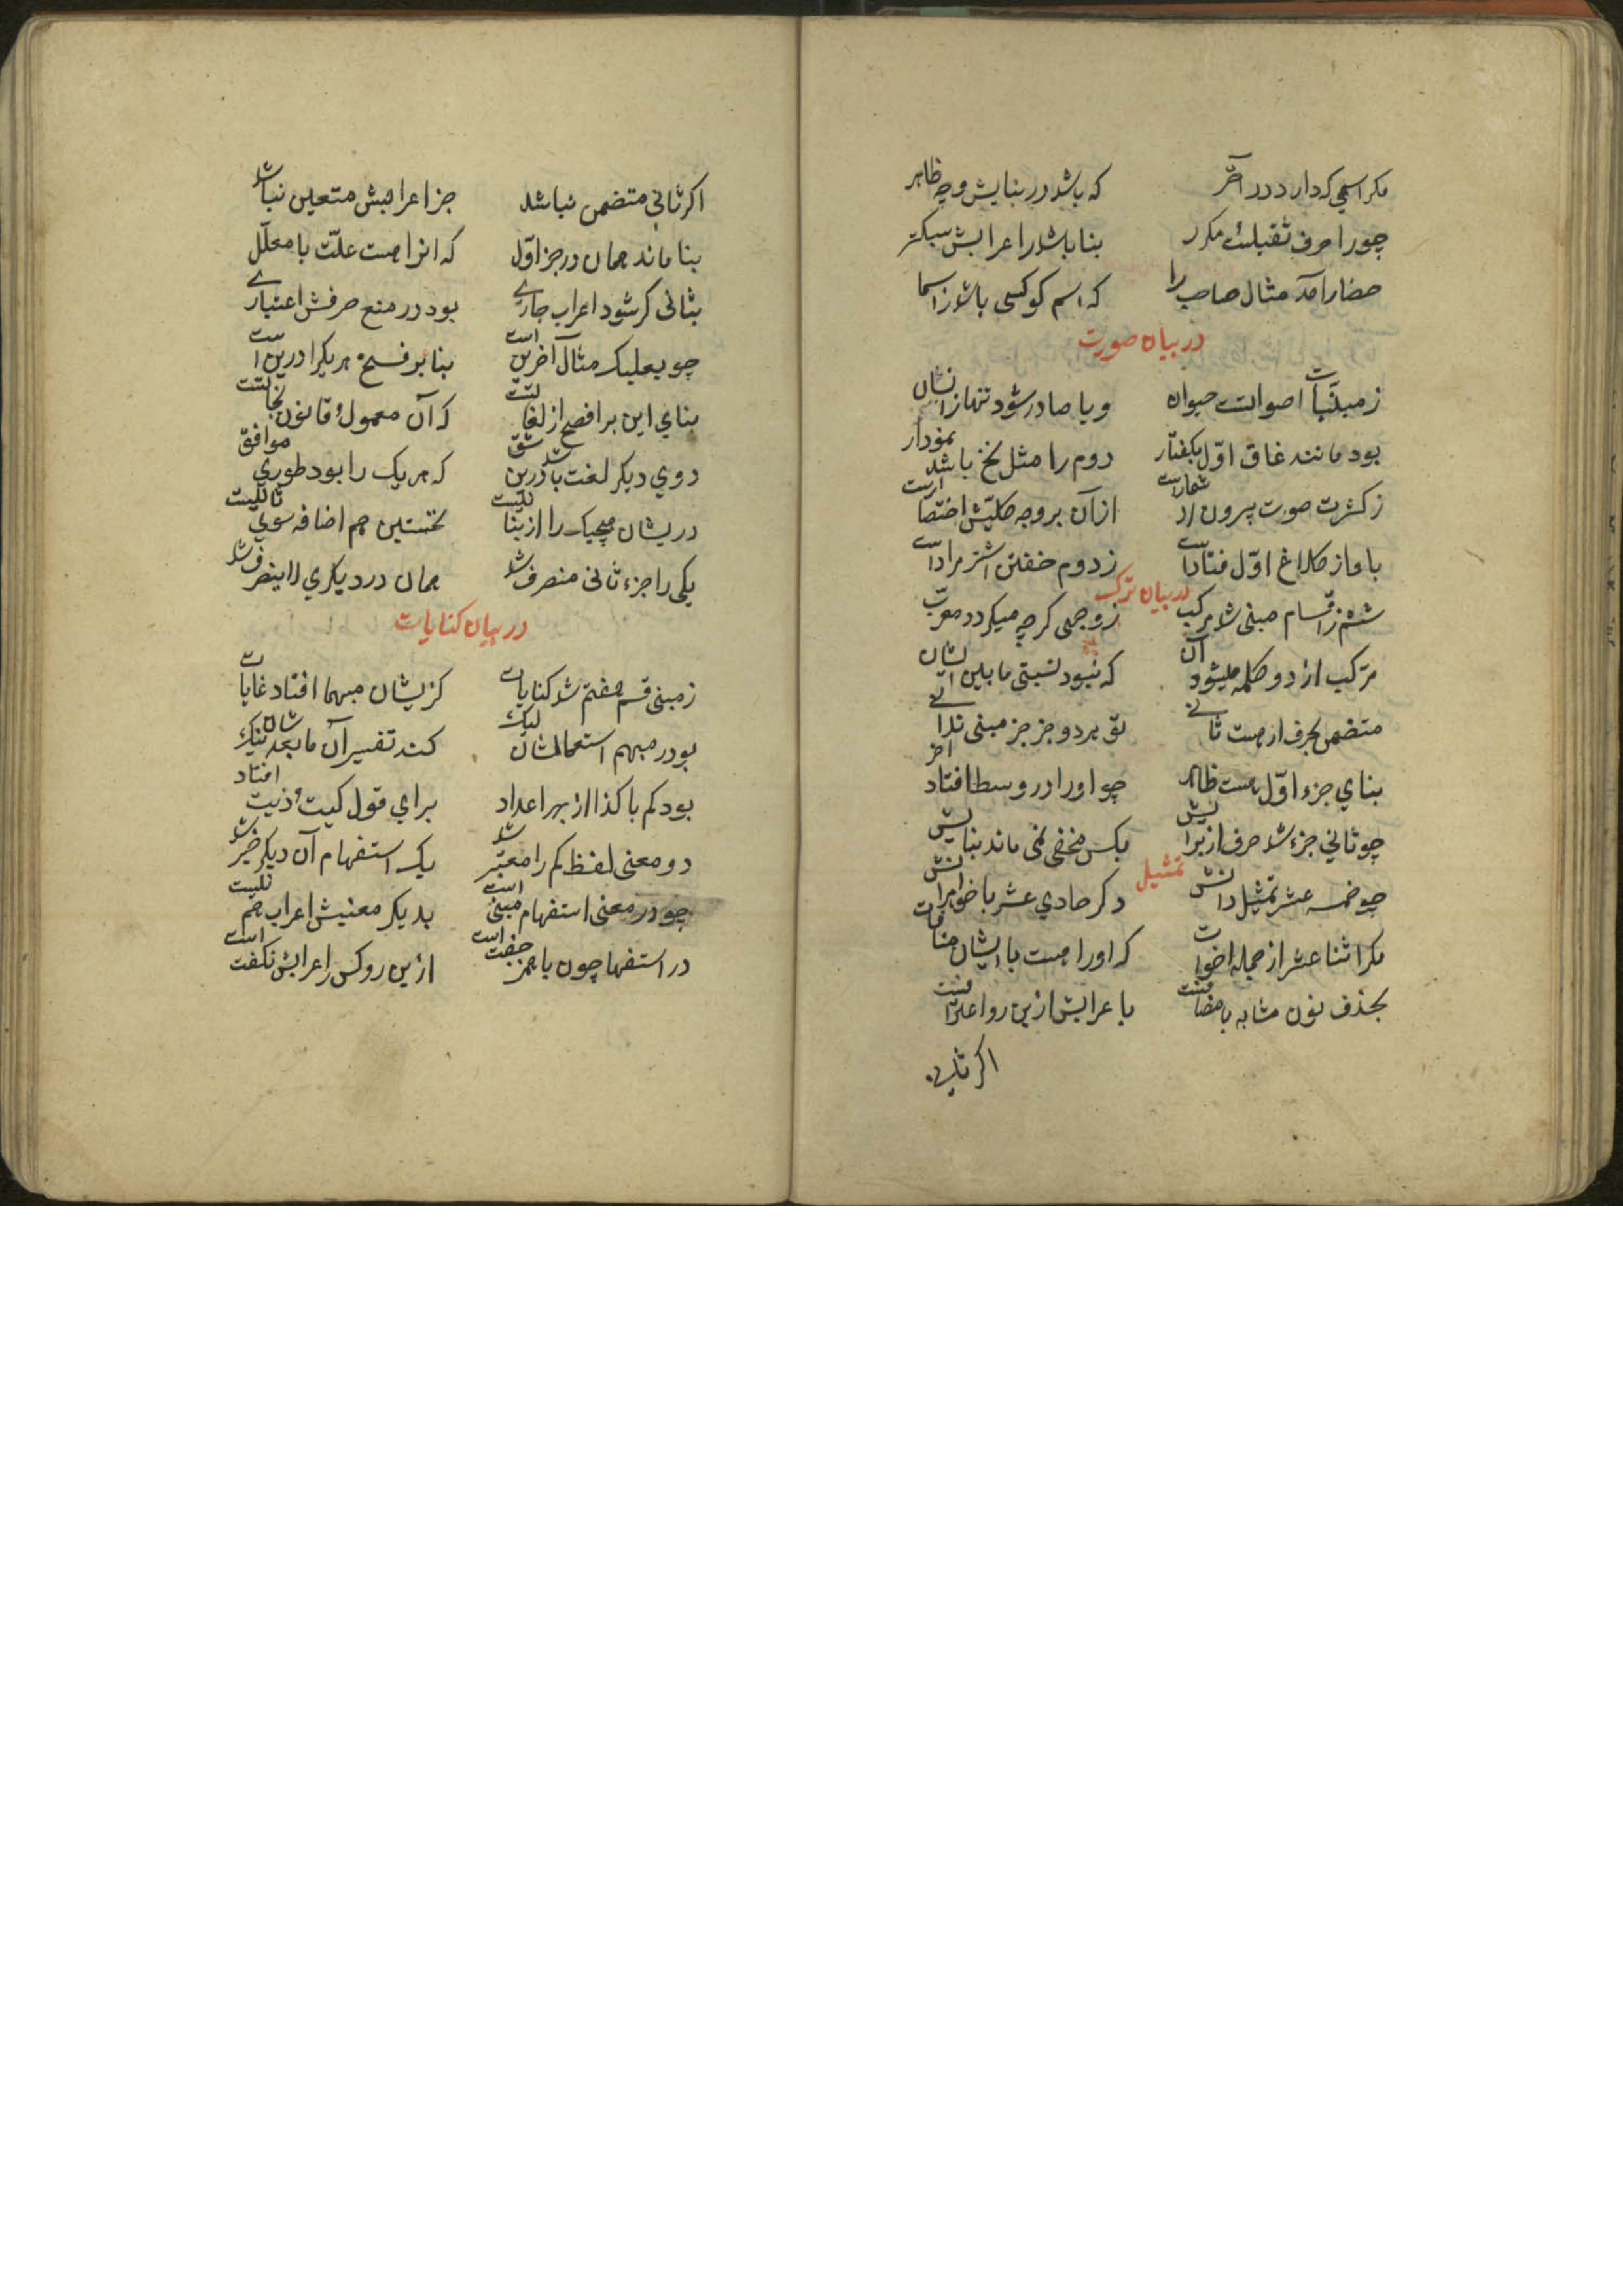 مکر اسمی که دارد در آخر که باشد در بنایش وجه ظاهر
چو را حرف ثقیلست مکرر بنا باشد را عرابش سبکتر
حضار آمد مثال صاحب را که اسم کوکبی باشد ز اسما
در بیان صورت
ز مبنیات اصواتست حیوان و یا صادر شود تنها ز انسان
بود مانند غاق اول بکفتار دوم را مثل نخ باشد نمودار
ز کثرت صورت بیرون از شمارست از آن بر وجه کلیش اختصارست
باواز کلاغ اول فتادست ز دوم خفتن اشتر مرادست
در بیان ترکب
ششم ز اقسام مبنی شد مرکب ز وجهی کرچه میکردد معرب
مرکب از دو کلمه میشود آن که نبود نسبتی ما بین ایشان
متضمن بحرف ار هست ثانی تو هر دو جز جز مبنی ندانی
بنای جزء اول هست ظاهر چو او را در وسط افتاد آخر
چو ثانی جزء شد حرف از برایش بکس مخفی نمی ماند بنایش
تمثیل
چو خمسه عشر تمثیل دانش دکر حادی عشر با خوانش
مکر اثنا عشر از جمله اخوات که او را هست با ایشان منافات
بحذف نون مشابه با مضافست با عرابش ازین رو اعترافست
اکر ثانی
اکر ثانی متضمن نباشد جز اعرابش متعین نباشد
بنا ماند همان در جز اول که انرا هست علت با معلل
بثانی کر شود اعراب جاری بود در منع صرفش اعتباری
چو بعلبک مثال آخرین است بنا بر فتح هر یکرا درین است
بنای این بر افصح از لغاتست که آن معمول و قانون نحاتست
دوی دیکر لغت باشد درین شق که هر یک را بود طوری موافق
دریشان هیچیک را از بنا نیست نخستین هم اضافه سوی ثانیست
یکی را جزء ثانی منصرف شد همان در دیکری لا ینصرف شد
در بیان کنایات
ز مبنی قسم هفتم شد کنایات کزیشان مبهما افتاد غایات
بود در مبهم استعمالشان لیک کند تفسیر آن ما بعدشان نیک
بود کم با کذا از بهر اعداد برای قول کیت و ذیت افتاد
دو معنی لفظ کم را معتبر شد یک استفهام آن دیکر خبر شد
چو در معنی استفهام مبنی است بدیکر معنیش اعراب هم نیست
در استفها چون با همزه جفت است ازین رو کس را عرابش نکفت است